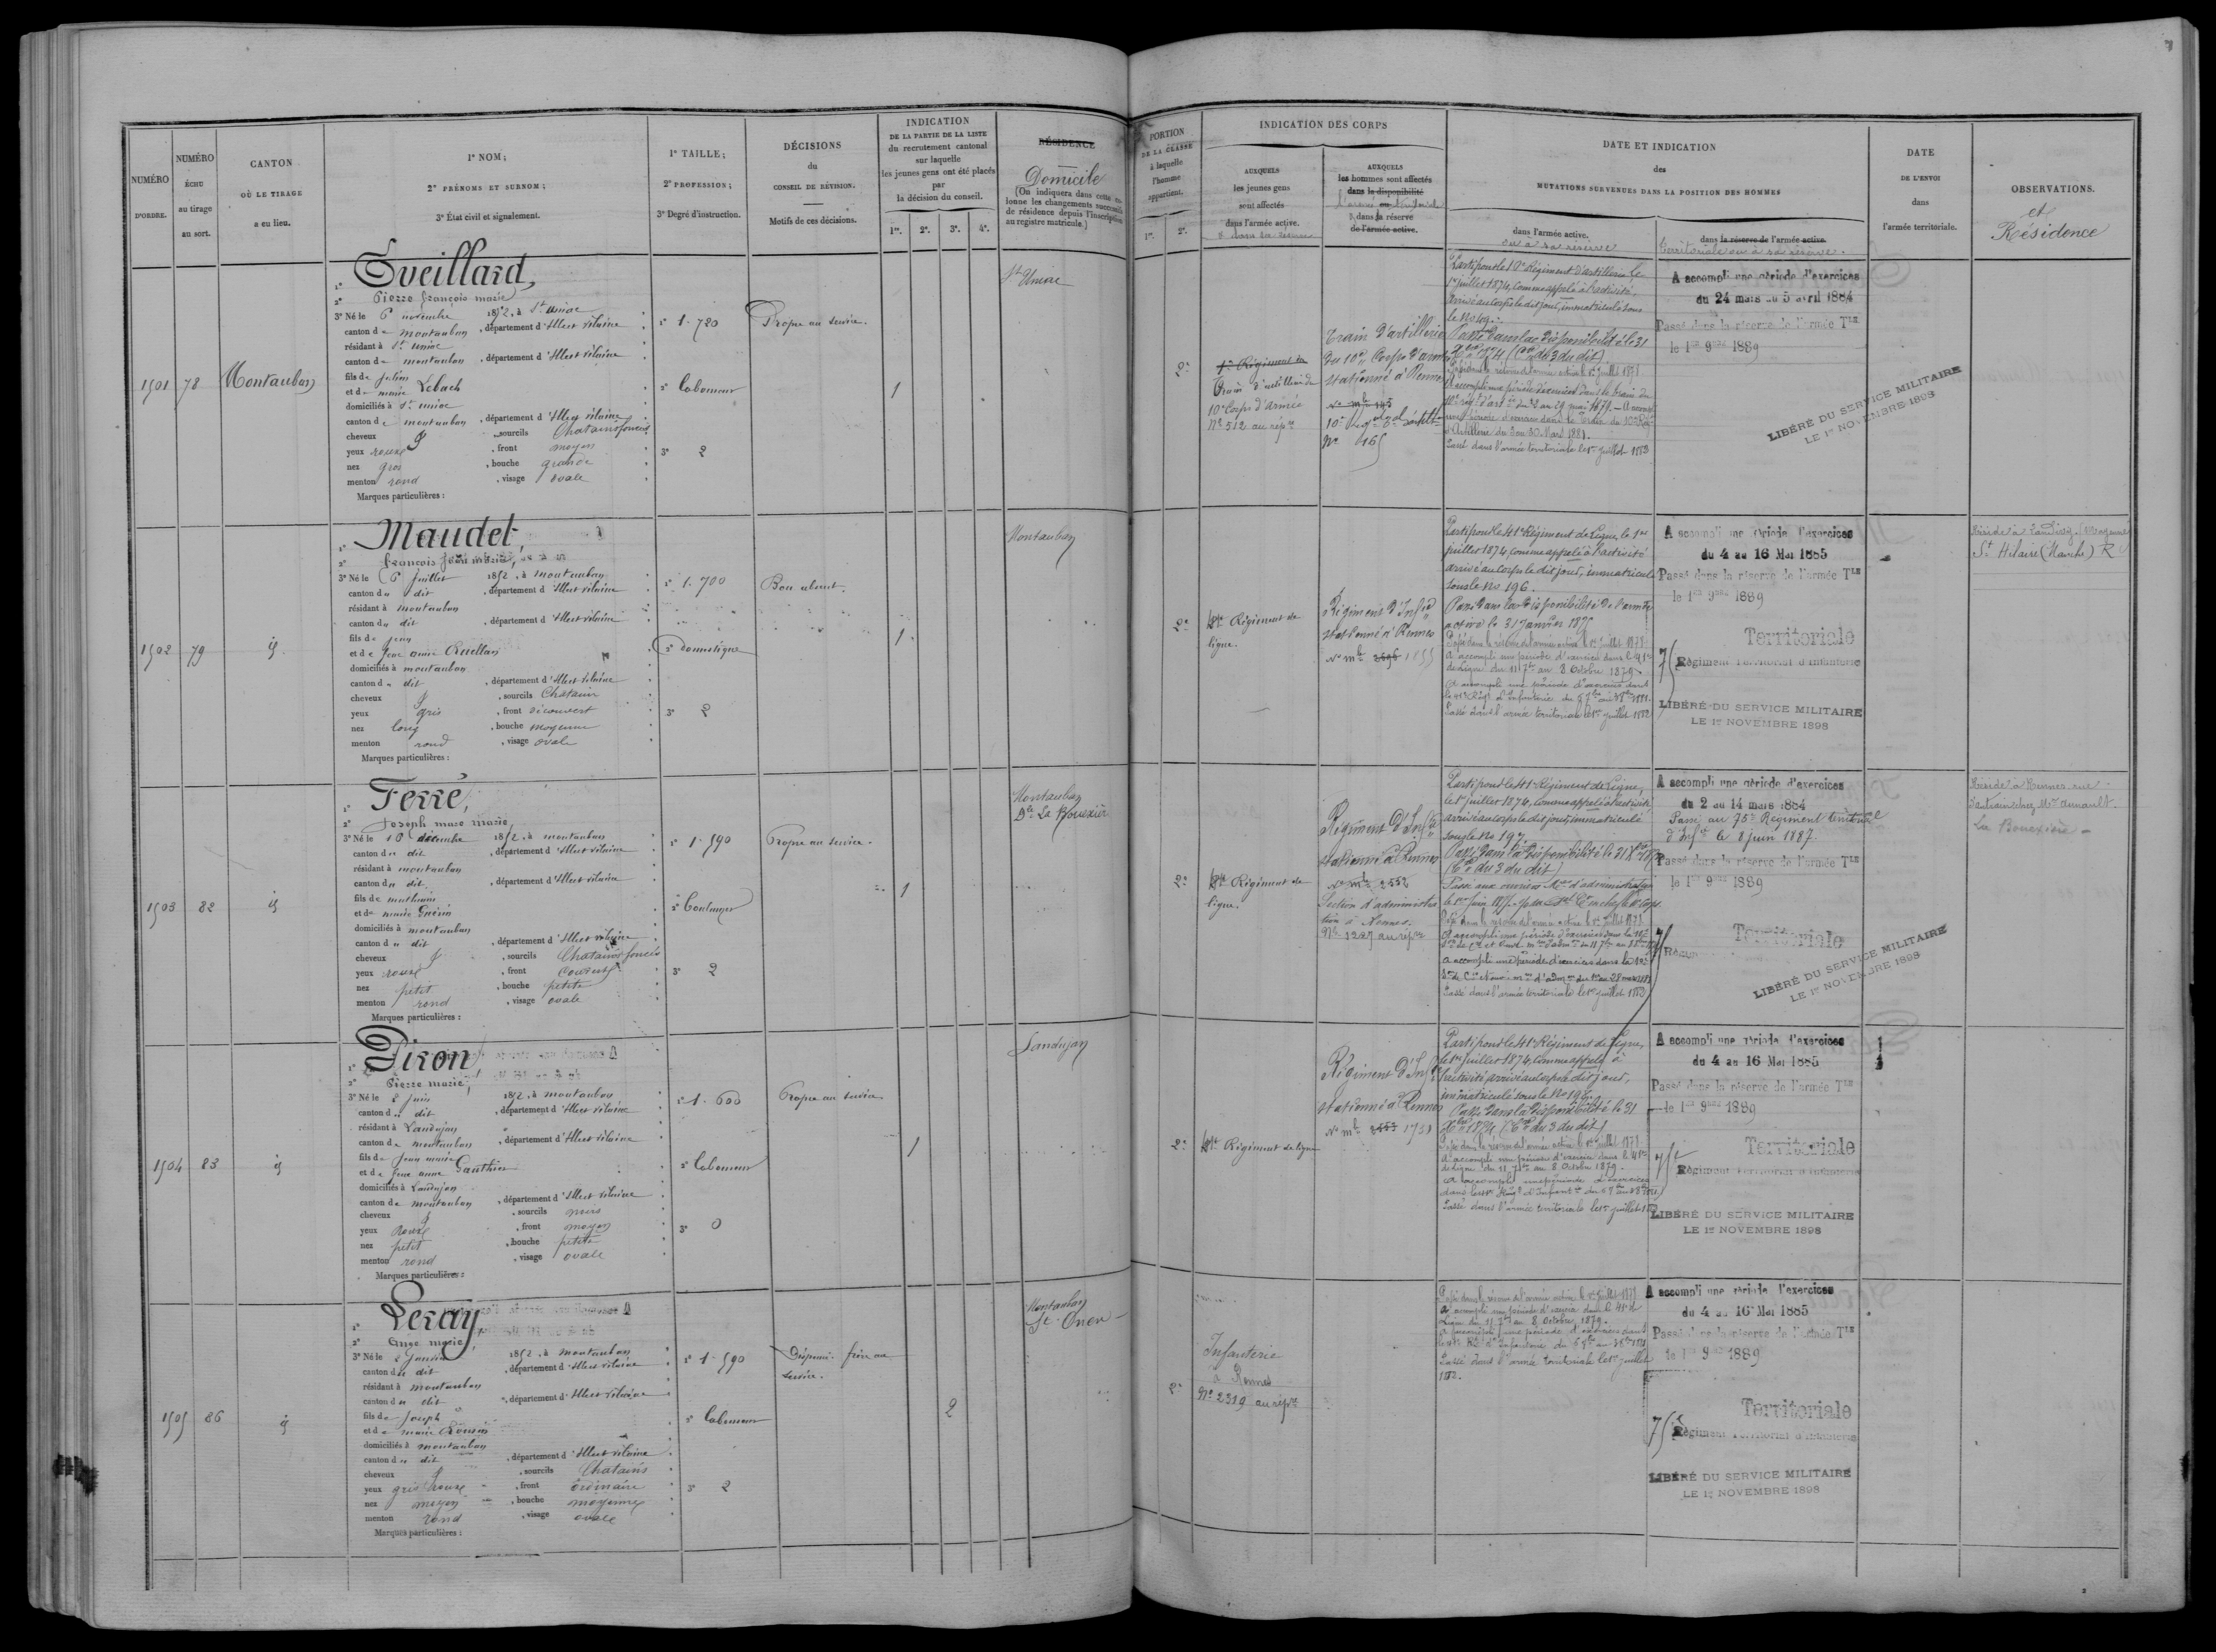 NUMÉRO
D'ORDRE.
NUMÉRO
ÉCHU
au tirage
au sort.
CANTON
OÙ LE TIRAGE
a eu lieu.
1° NOM;
2° PRÉNOMS ET SURNOM;
3° État civil et signalement.
1° TAILLE;
2° PROFESSION;
3° Degré d'instruction.
DÉCISIONS
du
CONSEIL DE RÉVISION.
Motifs de ces décisions.
INDICATION
DE LA PARTIE DE LA LISTE
du recrutement cantonal
sur laquelle
les jeunes gens ont été placés
par
la décision du conseil.
1re. 2e. 3e. 4e.
RÉSIDENCE
Domicile
(On indiquera dans cette co-
lonne les changements successifs
de résidence depuis l'inscription
au registre matricule.)
PORTION
DE LA CLASSE
à laquelle
l'homme
appartient.
1re. 2e.
INDICATION DES CORPS
AUXQUELS
les jeunes gens
sont affectés
dans l'armée active.
& dans sa réserve
AUXQUELS
les hommes sont affectés
dans la disponibilité
& dans la réserve
de l'armée active.
DATE ET INDICATION
des
MUTATIONS SURVENUES DANS LA POSITION DES HOMMES
dans l'armée active.
ou à sa réserve
dans la réserve de l'armée active.
territoriale ou à sa réserve.
DATE
DE L'ENVOI
dans
l'armée territoriale.
OBSERVATIONS.
et
Résidence
1501 78 Montauban
1° Eveillard,
2° Pierre françois marie
3° Né le 6 novembre 1852, à St uniac
canton de montauban, département d'Illeet vilaine
résidant à St uniac
canton de montauban, département d'Illeet vilaine
fils de julien
et de marie Lebach
domiciliés à St uniac
canton de montauban, département d'Illeet vilaine
cheveux & sourcils Chatains foncés
yeux roux, front moyen
nez gros, bouche grande
menton rond, visage ovale
Marques particulières :
1° 1.720
2° laboureur
3° 2
Propre au service.
1
St Uniac
2e
1er Régiment du
Train d'artillerie du
10e Corps d'armée
No 512 au répre
Train d'artillerie
du 10e Corps d'armée
stationné à Rennes
No mle 145
No 165
Parti pour le 10e Régiment d'artillerie le
1er juillet 1874, comme appelé à l'activité,
arrivé au corps le dit jour, immatriculé sous
le No 49.
Passé dans la disponibilité le 31
Xbre 1874 (Con du 3 du dit)
Passé dans la réserve de l'armée active le 1er juillet 1878
A accompli une période d'exercices dans le train du
10e régt d'art. du 2 au 29 mai 1879. – A accompli
d'Artillerie du 3 au 30 Mars 1881.
Passé dans l'armée territoriale le 1er juillet 1883
A accompli une période d'exercices
du 24 mars au 5 avril 1884
Passé dans la réserve de l'armée Tle
le 1er 9bre 1889
LIBÉRÉ DU SERVICE MILITAIRE
LE 1er NOVEMBRE 1898
1502 79 id
1° Maudet,
2° françois jean marie,
3° Né le 6 juillet 1852, à montauban
canton du dit, département d'Illeet vilaine
résidant à montauban
canton du dit, département d'Illeet vilaine
fils de jean
et de jeanne anne Ouellan
domiciliés à montauban
canton du dit, département d'Illeet vilaine
cheveux & sourcils Chatain
yeux gris, front découvert
nez long, bouche moyenne
menton rond, visage ovale
Marques particulières :
1° 1.700
2° domestique
3° 2
Bon absent.
1
Montauban
2e
41e Régiment de
ligne.
Régiment d'Infie
stationné à Rennes
No mle 2696 1855
Parti pour le 41e Régiment de Ligne, le 1er
juillet 1874, comme appelé à l'activité
arrivé au corps le dit jour, immatriculé
sous le No 196.
Passé dans la disponibilité de l'armée
active le 31 Janvier 1875
Passé dans la réserve de l'armée active le 1er juillet 1878
A accompli une période d'exercices dans le 41e
de Ligne du 11 7bre au 8 Octobre 1879.
A accompli une période d'exercices dans
Passé dans l'armée territoriale le 1er juillet 1882
A accompli une période d'exercices
du 4 au 16 Mai 1885
Passé dans la réserve de l'armée Tle
le 1er 9bre 1889
Territoriale
75e Régiment Territorial d'Infanterie
LIBÉRÉ DU SERVICE MILITAIRE
LE 1er NOVEMBRE 1898
St Hilaire (Manche) R
1503 82 id
1° Ferré,
2° Joseph marc marie,
3° Né le 16 décembre 1852, à montauban
canton du dit, département d'Illeet vilaine
résidant à montauban
canton du dit, département d'Illeet vilaine
fils de mathurin
et de marie Guérin
domiciliés à montauban
canton du dit, département d'Illeet vilaine
cheveux & sourcils Chatains foncés
yeux roux, front couvert
nez petit, bouche petite
menton rond, visage ovale
Marques particulières :
1° 1.590
2° boulanger
3° 2
Propre au service.
1
Montauban
Dt La Bouexière
2e
41e Régiment de
ligne.
Régiment d'Infie
stationné à Rennes
No mle 2552
Section d'administra
tion à Rennes.
No 1227 au répre
Parti pour le 41e Régiment de Ligne,
le 1er juillet 1874, comme appelé à l'activité
arrivé au corps le dit jour, immatriculé
sous le No 197.
Passé dans la disponibilité le 31 Xbre 1874
(Con du 3 du dit)
Passé dans la réserve de l'armée active le 1er juillet 1878
Passé dans l'armée territoriale le 1er juillet 1883
A accompli une période d'exercices
du 2 au 14 mars 1884
Passé au 75e Régiment territorial
d'Infie le 8 juin 1887.
Passé dans la réserve de l'armée Tle
le 1er 9bre 1889
Territoriale
LIBÉRÉ DU SERVICE MILITAIRE
LE 1er NOVEMBRE 1898
Réside à Rennes, rue
La Bouexière –
1504 83 id
1° Piron
2° Pierre marie,
3° Né le 8 juin 1852, à montauban
canton du dit, département d'Illeet vilaine
résidant à Landujan
canton de montauban, département d'Illeet vilaine
fils de jean marie
et de jeanne anne Gauthier
domiciliés à Landujan
canton de montauban, département d'Illeet vilaine
cheveux & sourcils noirs
yeux Roux, front moyen
nez petit, bouche petite
menton rond, visage ovale
Marques particulières :
1° 1.600
2° laboureur
3° 0
Propre au service
1
Landujan
2e
41e Régiment de ligne
Régiment d'Infie
stationné à Rennes
No mle 2553 1758
Parti pour le 41e Régiment de Ligne,
le 1er juillet 1874, comme appelé à
l'activité arrivé au corps le dit jour,
immatriculé sous le No 198.
Passé dans la disponibilité le 31
Xbre 1874 (Con du 3 du dit)
Passé dans la réserve de l'armée active le 1er juillet 1878
A accompli une période d'exercices dans le 41e
de Ligne du 11 7bre au 8 Octobre 1879.
A accompli une période d'exercices
Passé dans l'armée territoriale le 1er juillet
A accompli une période d'exercices
du 4 au 16 Mai 1885
Passé dans la réserve de l'armée Tle
le 1er 9bre 1889
Territoriale
75e Régiment Territorial d'Infanterie
LIBÉRÉ DU SERVICE MILITAIRE
LE 1er NOVEMBRE 1898
1505 86 id
1° Leray,
2° Ange marie,
3° Né le 2 Janvier 1852, à montauban
canton du dit, département d'Illeet vilaine
résidant à montauban
canton du dit, département d'Illeet vilaine
fils de Joseph
et de marie Roussin
domiciliés à montauban
canton du dit, département d'Illeet vilaine
cheveux & sourcils Chatains
yeux gris roux, front ordinaire
nez moyen, bouche moyenne
menton rond, visage ovale
Marques particulières :
1° 1.590
2° laboureur
3° 2
Dispensé. frère au
service.
2
Montauban
St. Onen –
2e
Infanterie
à Rennes
No 2319 au répre
Passé dans la réserve de l'armée active le 1er juillet 1878
A accompli une période d'exercices dans le 41e de
Ligne du 11 7bre au 8 Octobre 1879.
A accompli une période d'exercices dans
Passé dans l'armée territoriale le 1er juillet
1882.
A accompli une période d'exercices
du 4 au 16 Mai 1885
Passé dans la réserve de l'armée Tle
le 1er 9bre 1889
Territoriale
75e Régiment Territorial d'Infanterie
LIBÉRÉ DU SERVICE MILITAIRE
LE 1er NOVEMBRE 1898